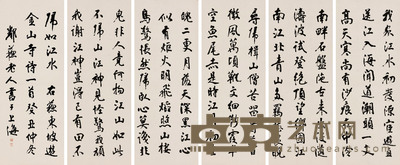 我家江水初發源宦遊直
送江入海聞道潮頭一丈
高天寒尚有沙痕在中泠
南畔石盤陀古來出沒隨
濤波試登絕頂望鄉國江
南江北青山多羈愁畏晚
尋歸楫山僧苦留看落日
微風萬頃靴文細斷霞半
空魚尾赤是時江月初生
魄二更月落天深黑江心
似有炬火明飛焰照山棲
鳥驚悵然歸臥心莫識非
鬼非人竟何物江山如此
不歸山江神見怪驚我頑
我謝江神豈得已有田不
歸如江水 右錄東坡遊
金山寺詩一首癸丑仲冬
老人書於上海